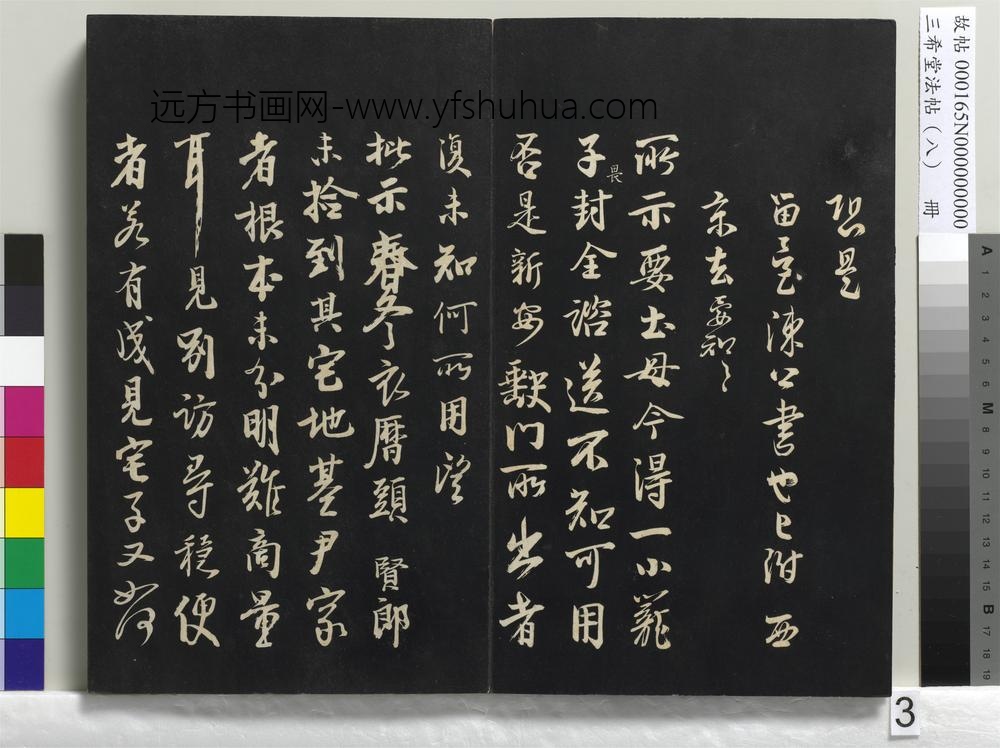 恐是
留臺陳公書也已附西
京去要知〻
所示要土母今得一小籠
子封全諮送不知可用
畏
否是新安歙門所出者
復未知何所用望
批示春冬衣曆頭賢郎
未捡到其宅地基尹家
者根本未分明難商量
耳見別訪尋穏便
者若有成見宅子又如何
远方书画网-www.yfshuhua.com
故帖 000165N000000000
三希堂法帖（八） 冊
3
A 1 2 3 4 5 6 M 8 9 10 11 12 13 14 15 B 17 18 19